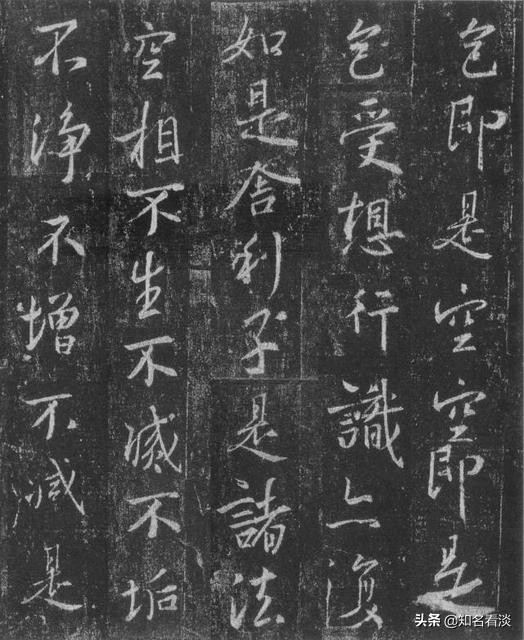 色即是空空即是
色受想行識亦復
如是舍利子是諸法
空相不生不滅不垢
不淨不增不減是
头条 @知名看淡